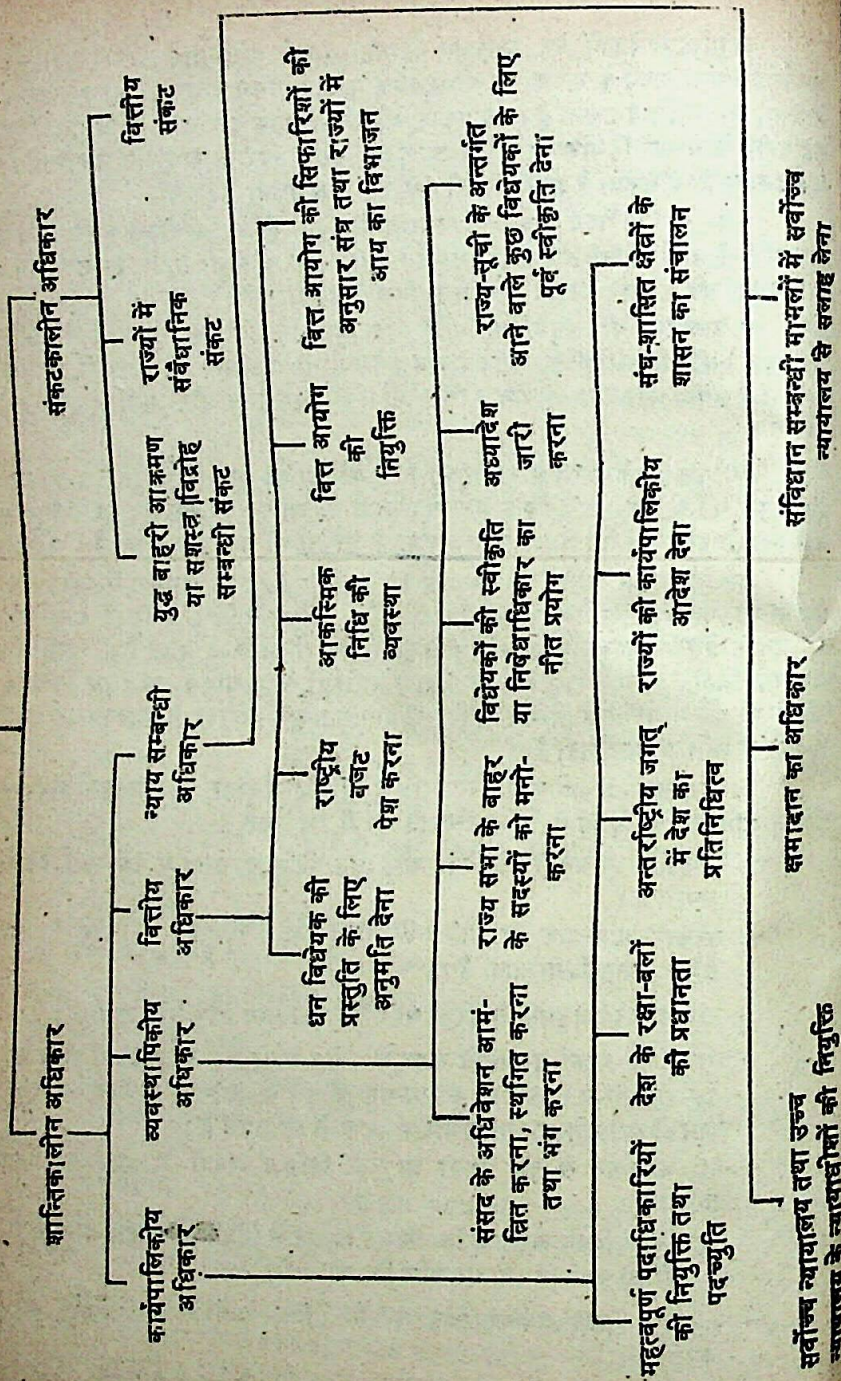 शान्तिकालीन अधिकार
संकटकालीन अधिकार
कार्यपालिकीय
अधिकार
व्यवस्थापिकीय
अधिकार
वित्तीय
अधिकार
न्याय सम्बन्धी
अधिकार
युद्ध बाहरी आक्रमण
या सशस्त्र विद्रोह
सम्बन्धी संकट
राज्यों में
संवैधानिक
संकट
वित्तीय
संकट
धन विधेयक की
प्रस्तुति के लिए
अनुमति देना
राष्ट्रीय
बजट
पेश करना
आकस्मिक
निधि की
व्यवस्था
वित्त आयोग
की
नियुक्ति
वित्त आयोग की सिफारिशों की
अनुसार संघ तथा राज्यों में
आय का विभाजन
संसद के अधिवेशन आमं-
त्रित करना, स्थगित करना
तथा भंग करना
राज्य सभा के बाहर
के सदस्यों को मनो-
करना
विधेयकों की स्वीकृति
या निषेधाधिकार का
नीत प्रयोग
अध्यादेश
जारी
करना
राज्य-सूची के अन्तर्गत
आने वाले कुछ विधेयकों के लिए
पूर्व स्वीकृति देना
महत्वपूर्ण पदाधिकारियों
की नियुक्ति तथा
पदच्युति
देश के रक्षा-बलों
की प्रधानता
अन्तर्राष्ट्रीय जगत्
में देश का
प्रतिनिधित्व
राज्यों की कार्यपालिकीय
आदेश देना
संघ-शासित क्षेत्रों के
शासन का संचालन
सर्वोच्च न्यायालय तथा उच्च
न्यायालय के न्यायाधीशों की नियुक्ति
क्षमादान का अधिकार
संविधान सम्बन्धी मामलों में सर्वोच्च
न्यायालय से सलाह लेना